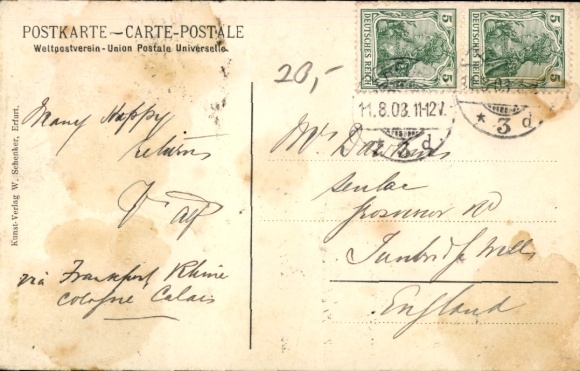 POSTKARTE – CARTE-POSTALE
Weltpostverein - Union Postale Universelle.
Kunst-Verlag W. Schenker, Erfurt.
20,-
5 DEUTSCHES REICH 5
5 DEUTSCHES REICH 5
11.8.08. 11-12V.
* 3 d
* 3 d
Many Happy
returns
via Frankfurt Rhine
Cologne Calais
Mrs
Senlac
Grosvenor Rd
Tunbridge Wells
England